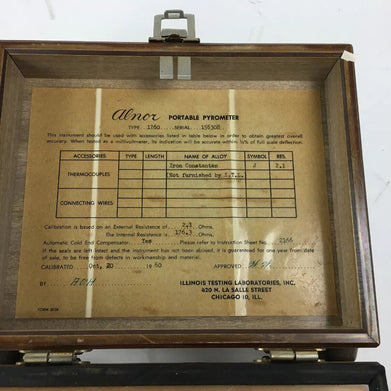 Alnor PORTABLE PYROMETER
TYPE 1760 SERIAL 156308
This instrument should be used with accessories listed in table below in order to obtain greatest overall
accuracy. When tested as a millivoltmeter, its indication will be accurate within ½% of full scale deflection.
ACCESSORIES TYPE LENGTH NAME OF ALLOY SYMBOL RES.
THERMOCOUPLES Iron Constantan J 2.1
(Not furnished by I.T.L.
CONNECTING WIRES
Calibration is based on an External Resistance of 2.1 Ohms.
The Internal Resistance is 176.3 Ohms.
Automatic Cold End Compensator Yes Please refer to Instruction Sheet No. 2166
If the seals are left intact and the instrument has not been abused, it is guaranteed for one year from date
of sale, to be free from defects in workmanship and material.
CALIBRATED Oct, 20 1960 APPROVED
BY
ILLINOIS TESTING LABORATORIES, INC.
420 N. LA SALLE STREET
CHICAGO 10, ILL.